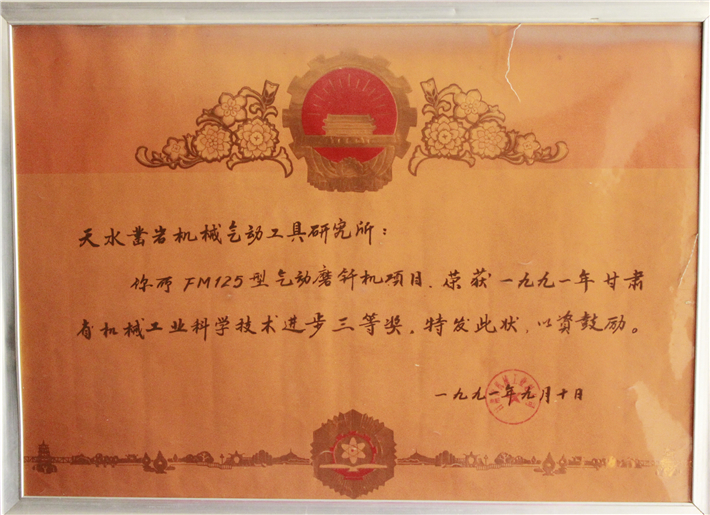 天水凿岩机械气动工具研究所：
你所FM125型气动磨钎机项目，荣获一九九一年甘肃
省机械工业科学技术进步三等奖，特发此状，以资鼓励。
一九九一年九月十日